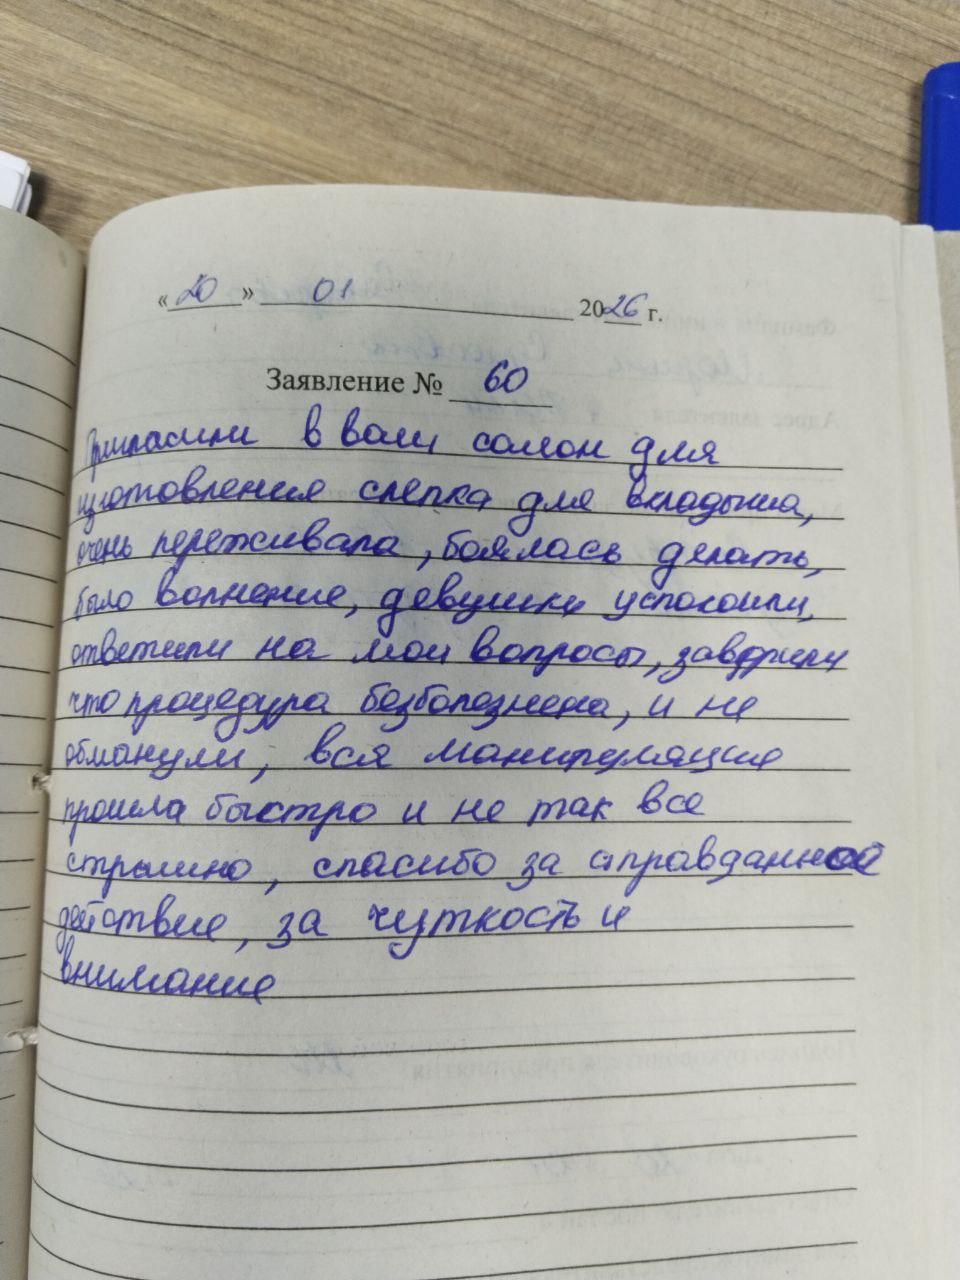 «20» 01 2026 г.
Заявление № 60
Пригласили в ваш салон для
изготовления слепка для вкладыша,
очень переживала, боялась делать,
было волнение, девушки успокоили,
ответили на мои вопросы, заверили
что процедура безболезнена, и не
обманули, вся манипуляция
прошла быстро и не так все
страшно, спасибо за оправданное
действие, за чуткость и
внимание